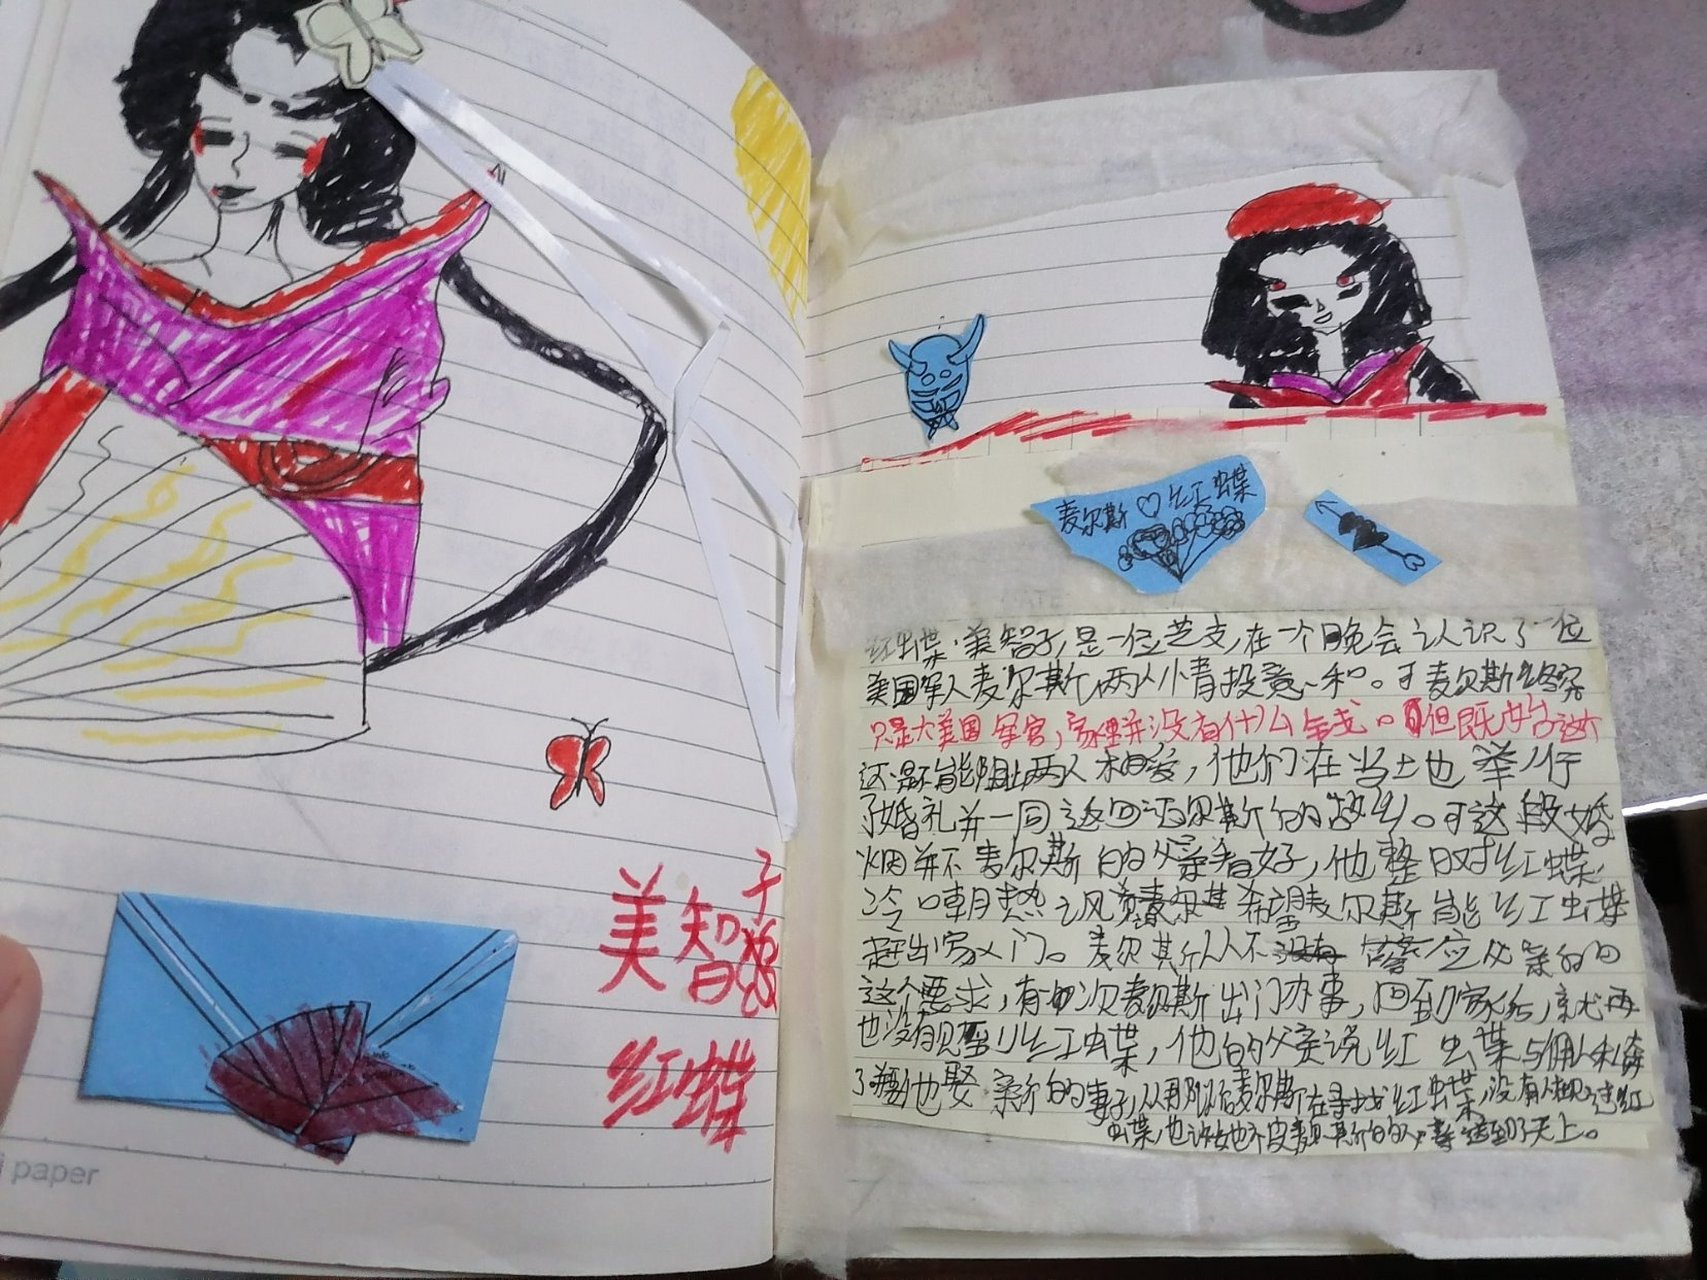 美智子
红蝶
paper
麦尔斯♡红蝶
红蝶·美智子,是一位芝支,在一个晚会认识了一位
美国军人麦尔斯,两人情投意和。可麦尔斯终究
只是大美国军官,家里并没有什么钱。但既如此这
还是不能阻止两人相爱,他们在当土也举行
了婚礼并一同返回迈尔斯的故乡。可这段婚
烟并不麦尔斯的父亲看好,他整日对红蝶
冷嘲热讽 麦尔斯 希望麦尔斯能红蝶
赶出家门。麦尔斯从不答应父亲的
这个要求,有一次麦尔斯出门办事,回到家后,就再
也没有见到红蝶,他的父亲说红蝶与佣人私奔
了 他娶亲新的妻子,从那以后麦尔斯在寻找红蝶,没有人见过红
蝶,也许她被麦尔斯的父亲送到了天上。